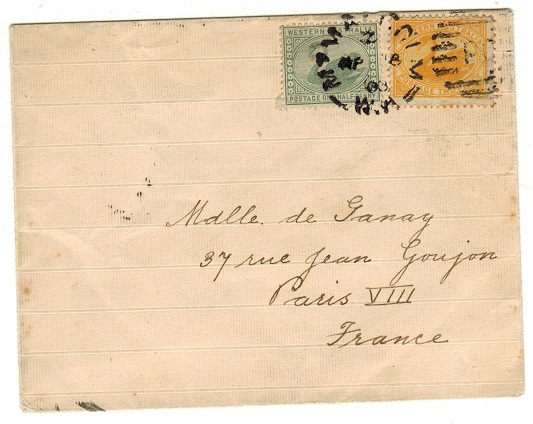 WESTERN
POSTAGE ONE HALFPENNY
Mdlle. de Ganay
37 rue Jean Goujon
Paris VIII
France